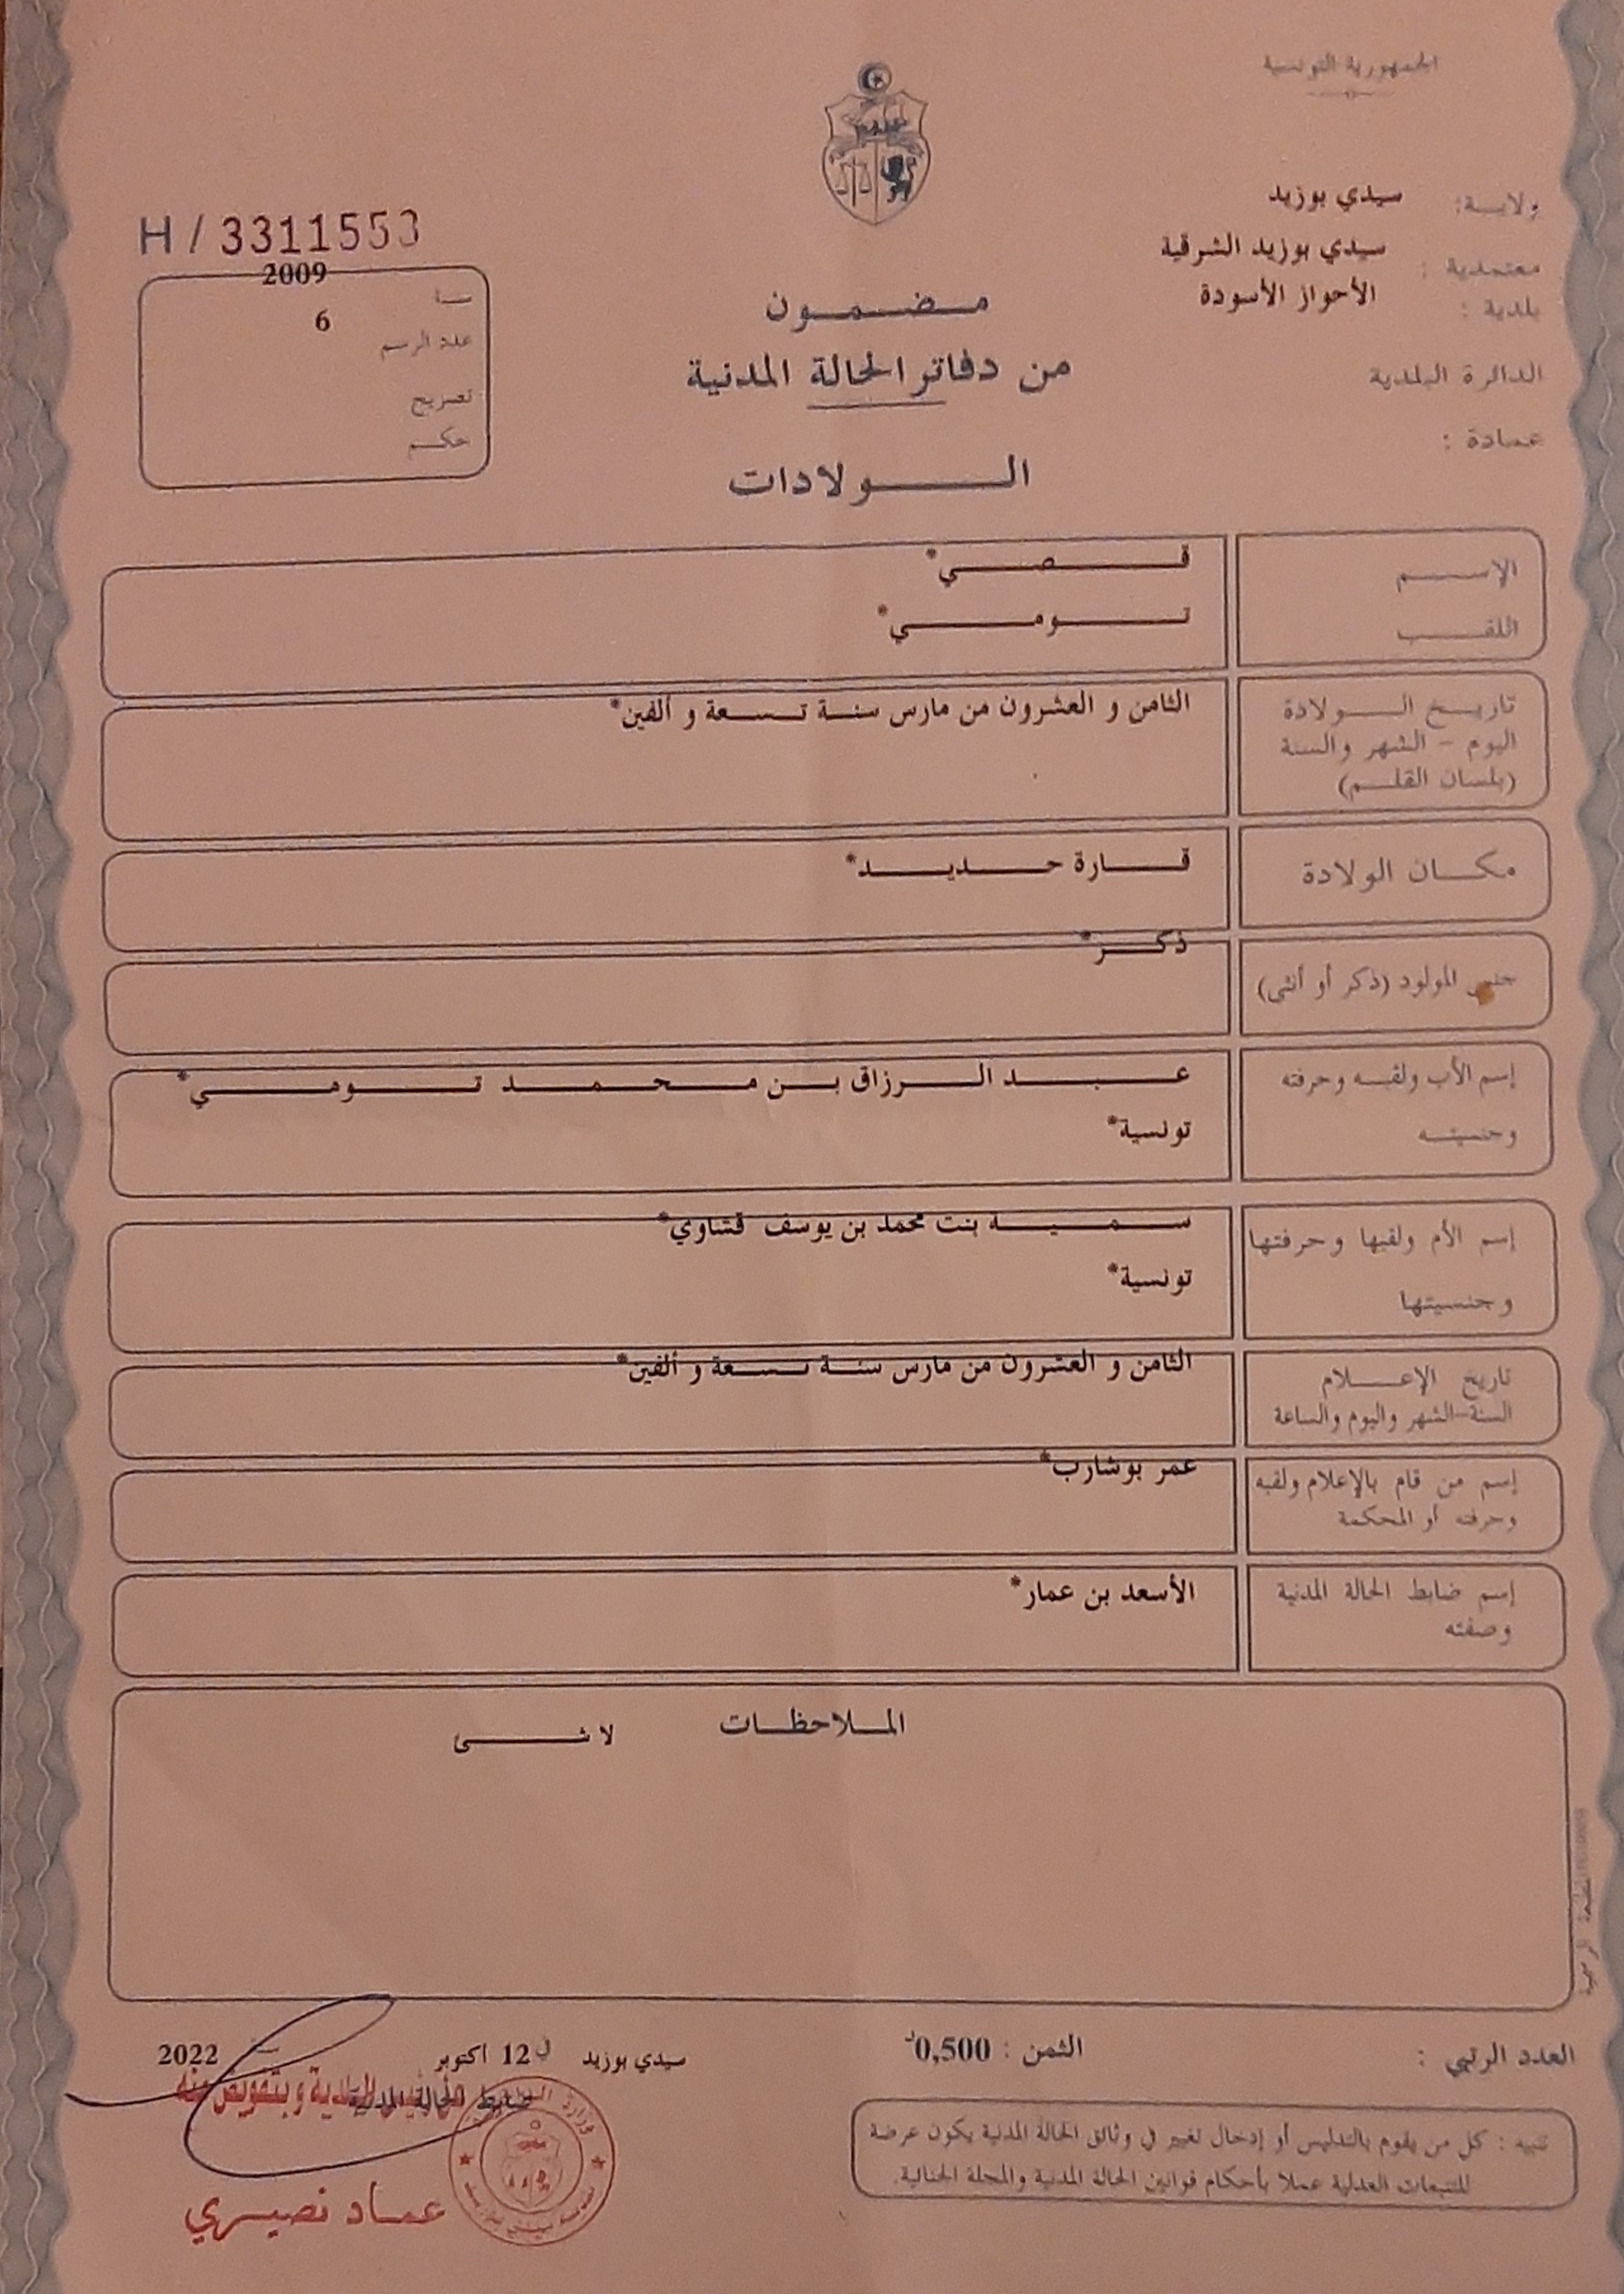 الجمهورية التونسية
ولاية: سيدي بوزيد
معتمدية : سيدي بوزيد الشرقية
بلدية : الأحواز الأسودة
الدائرة البلدية
عمادة :
H / 3311553
2009
سنة
6
عدد الرسم
تصريح
حكم
مضمون
من دفاتر الحالة المدنية
الولادات
الإسم قصي*
اللقب تومي*
تاريخ الولادة الثامن و العشرون من مارس سنة تسعة و ألفين*
اليوم - الشهر والسنة
(بلسان القلم)
مكان الولادة قارة حديد*
جنس المولود (ذكر أو أنثى) ذكر*
إسم الأب ولقبه وحرفته عبد الرزاق بن محمد تومي*
وجنسيته تونسية*
إسم الأم ولقبها وحرفتها سمية بنت محمد بن يوسف قشاوي*
وجنسيتها تونسية*
تاريخ الإعلام الثامن و العشرون من مارس سنة تسعة و ألفين*
السنة-الشهر واليوم والساعة
إسم من قام بالإعلام ولقبه عمر بوشارب*
وحرفته أو المحكمة
إسم ضابط الحالة المدنية الأسعد بن عمار*
وصفته
الملاحظات لا شى
العدد الرتبي : الثمن : 0,500د
سيدي بوزيد في 12 اكتوبر 2022
ضابط الحالة المدنية
عن رئيس البلدية و بتفويض منه
عماد نصيري
تنبيه : كل من يقوم بالتدليس أو إدخال تغيير في وثائق الحالة المدنية يكون عرضة
للتتبعات العدلية عملا بأحكام قوانين الحالة المدنية والمجلة الجنائية.